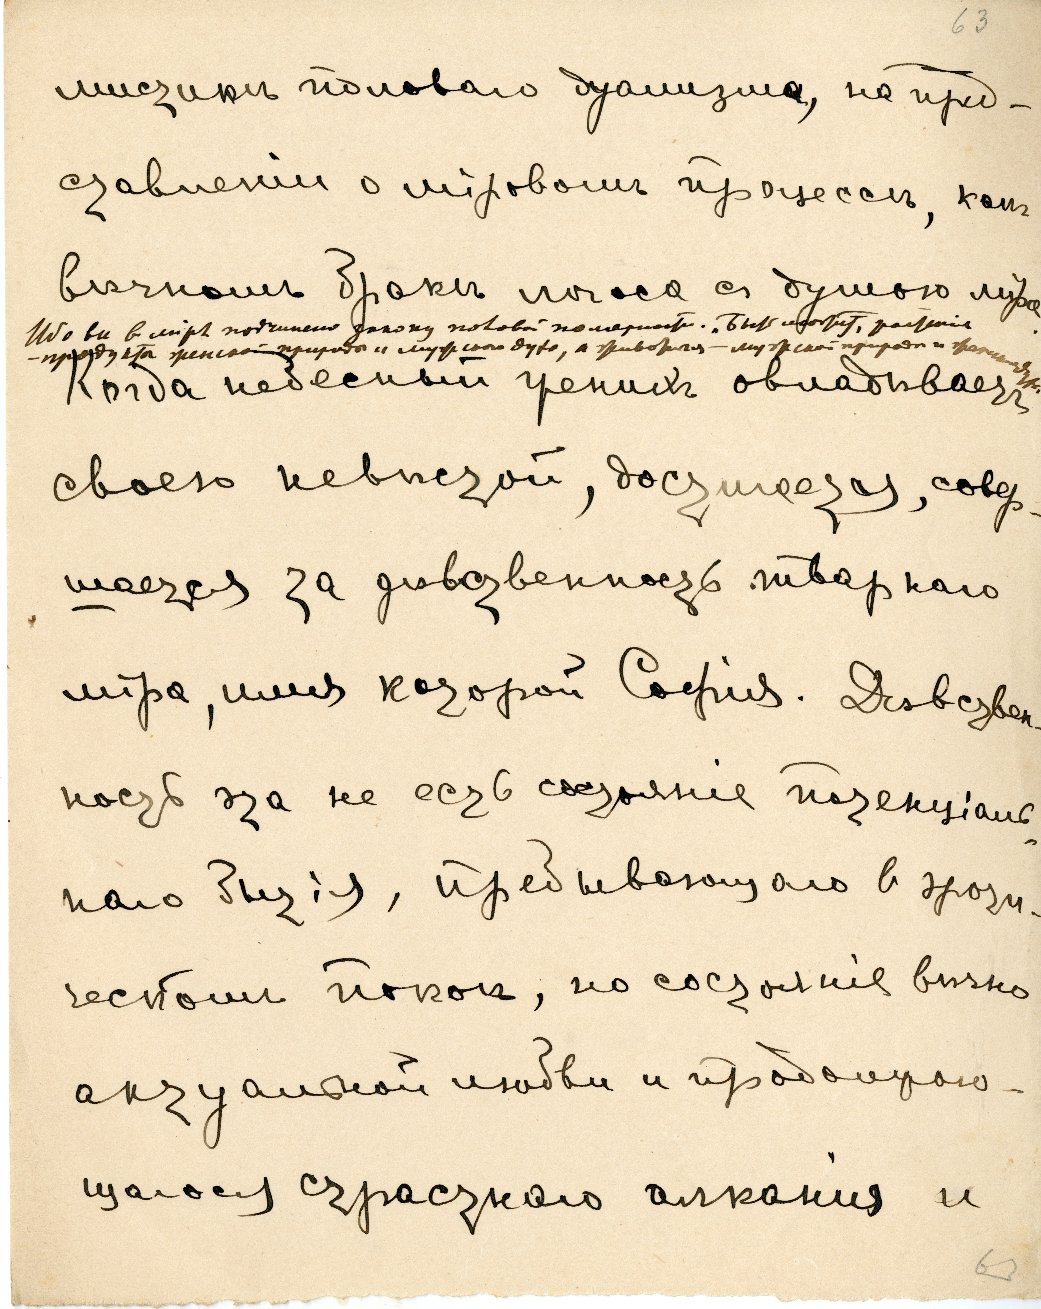 63
мистикѣ полового дуализма, на пред-
ставленіи о міровомъ процессѣ, какъ
вѣчномъ бракѣ логоса съ душою міра.
Ибо вѣ в мірѣ подчинено закону половой полярности. Быть можетъ, растенія
– продуктъ женской природы и мужского духа, а животныя – мужской природы и женскаго духа.
Когда небесный женихъ овладѣваетъ
своею невѣстой, достигается, совер-
шается за дѣвственность тварнаго
міра, имя которой Софія. Дѣвствен-
ность эта не есть состояніе потенціаль-
наго бытія, пребывающаго в эроти-
ческомъ покоѣ, но состояніе вѣчно
актуальной любви и продолжаю-
щагося страстнаго алканія и
63